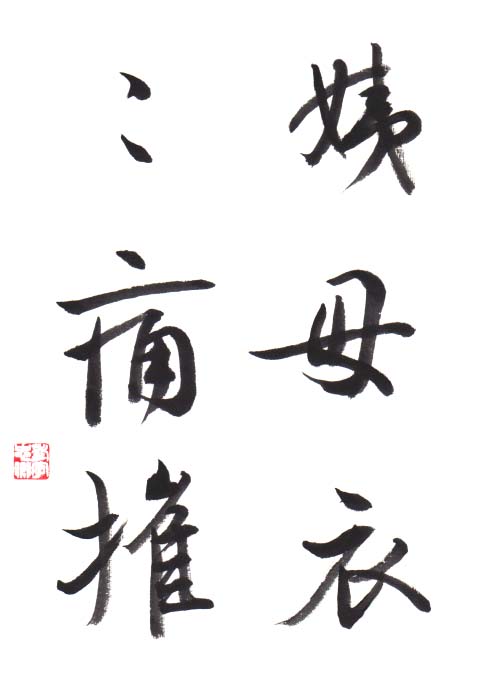 姨母衣
〻痛摧